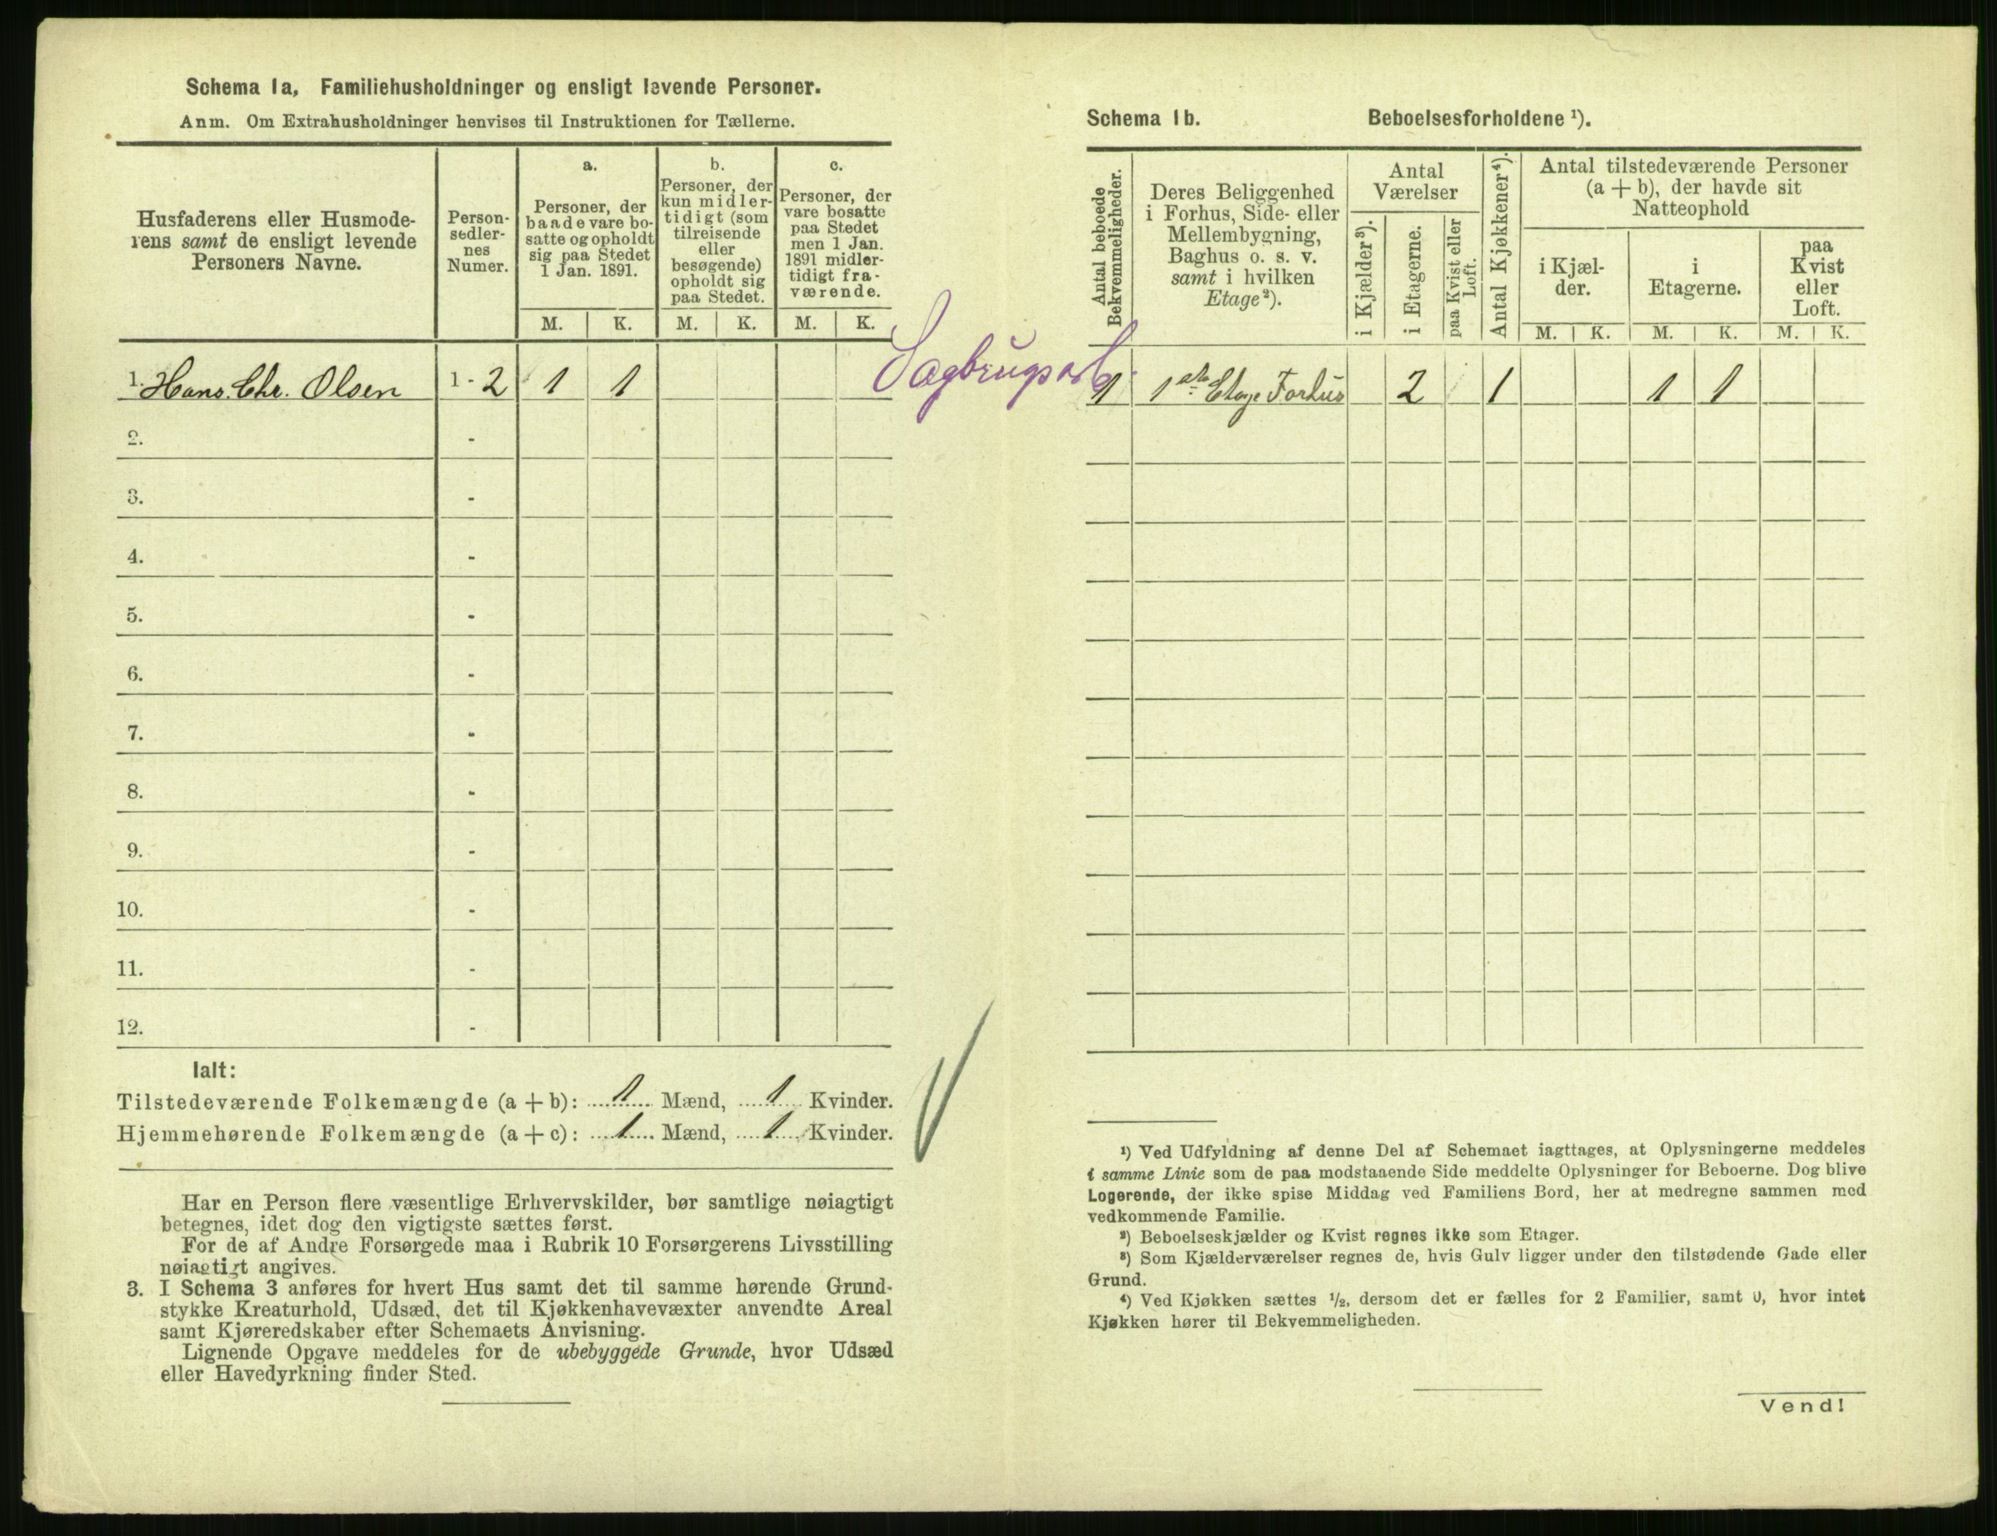 Schema 1a, Familiehusholdninger og ensligt levende Personer.
Anm. Om Extrahusholdninger henvises til Instruktionen for Tællerne.
Husfaderens eller Husmode-
rens samt de ensligt levende
Personers Navne.
Person-
sedler-
nes
Numer.
a.
Personer, der
baade vare bo-
satte og opholdt
sig paa Stedet
1 Jan. 1891.
b.
Personer, der
kun midler-
tidigt (som
tilreisende
eller
besøgende)
opholdt sig
paa Stedet.
c.
Personer, der
vare bosatte
paa Stedet
men 1 Jan.
1891 midler-
tidigt fra-
værende.
M. K. M. K. M. K.
1. Hans. Chr. Olsen 1 - 2 1 1
2. -
3. -
4. -
5. -
6. -
7. -
8. -
9. -
10. -
11. -
12. -
Ialt:
Tilstedeværende Folkemængde (a + b): 1 Mænd, 1 Kvinder.
Hjemmehørende Folkemængde (a + c): 1 Mænd, 1 Kvinder.
Har en Person flere væsentlige Erhvervskilder, bør samtlige nøiagtigt
betegnes, idet dog den vigtigste sættes først.
For de af Andre Forsørgede maa i Rubrik 10 Forsørgerens Livsstilling
nøiagtigt angives.
3. I Schema 3 anføres for hvert Hus samt det til samme hørende Grund-
stykke Kreaturhold, Udsæd, det til Kjøkkenhavevæxter anvendte Areal
samt Kjøreredskaber efter Schemaets Anvisning.
Lignende Opgave meddeles for de ubebyggede Grunde, hvor Udsæd
eller Havedyrkning finder Sted.
Schema 1b. Beboelsesforholdene ¹).
Antal beboede
Bekvemmeligheder.
Deres Beliggenhed
i Forhus, Side- eller
Mellembygning,
Baghus o. s. v.
samt i hvilken
Etage²).
Antal
Værelser
i Kjælder³).
i Etagerne.
paa Kvist eller
Loft.
Antal Kjøkkener⁴).
Antal tilstedeværende Personer
(a + b), der havde sit
Natteophold
i Kjæl-
der.
i
Etagerne.
paa
Kvist
eller
Loft.
M. K. M. K. M. K.
1 1ste Etage Forhus 2 1 1 1
¹) Ved Udfyldning af denne Del af Schemaet iagttages, at Oplysningerne meddeles
i samme Linie som de paa modstaaende Side meddelte Oplysninger for Beboerne. Dog blive
Logerende, der ikke spise Middag ved Familiens Bord, her at medregne sammen med
vedkommende Familie.
²) Beboelseskjælder og Kvist regnes ikke som Etager.
³) Som Kjælderværelser regnes de, hvis Gulv ligger under den tilstødende Gade eller
Grund.
⁴) Ved Kjøkken sættes ½, dersom det er fælles for 2 Familier, samt 0, hvor intet
Kjøkken hører til Bekvemmeligheden.
Vend!